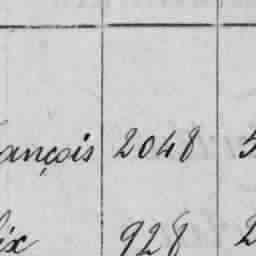 ançois 2048 5
lix 928 2